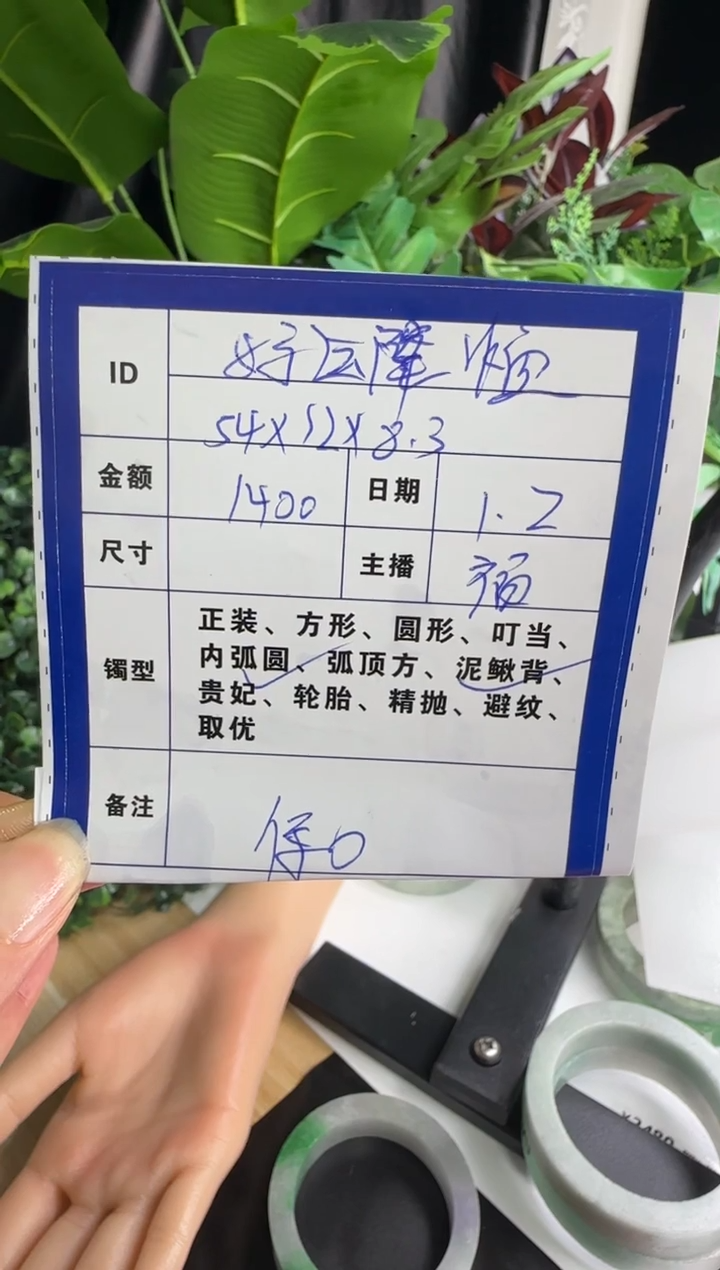 ID 好运
54×12×8.3
金额 1400 日期 1.2
尺寸 主播
镯型 正装、方形、圆形、叮当、
内弧圆、弧顶方、泥鳅背、
贵妃、轮胎、精抛、避纹、
取优
备注